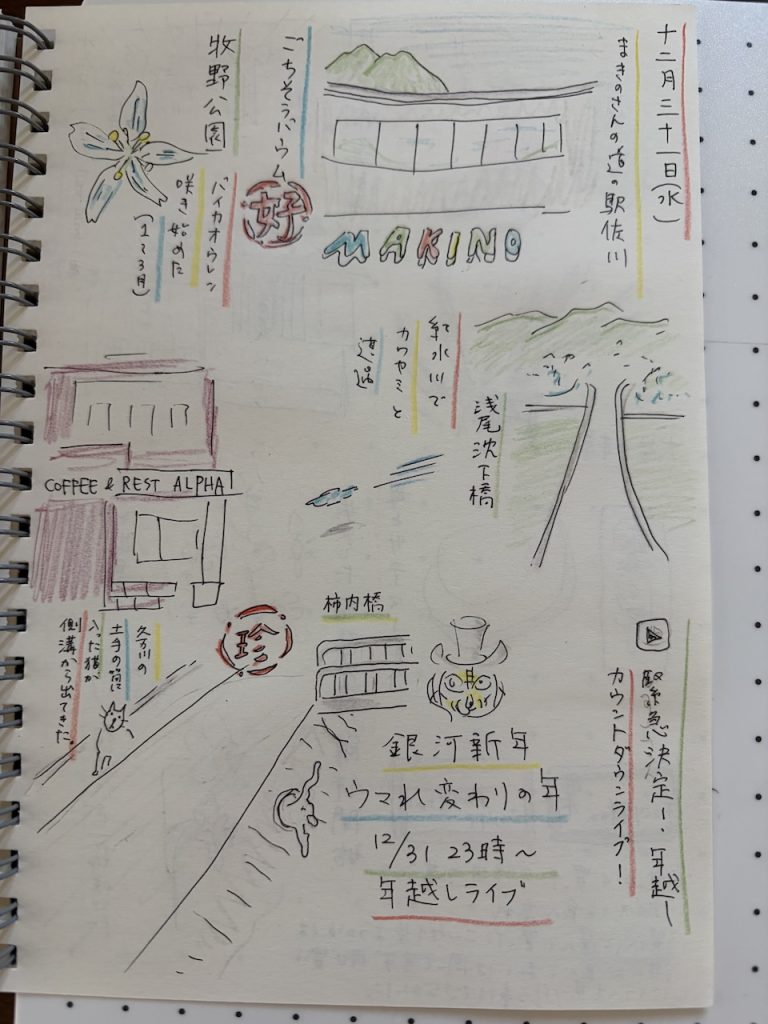 十二月三十一日(水)
まきのさんの道の駅佐川
MAKINO
ごちそうバウム
好
牧野公園
バイカオウレン
咲き始めた
(1〜3月)
紅水川で
カワセミと
遭遇
浅尾沈下橋
COFFEE & REST ALPHA
珍
久万川の
土手の筒に
入った猫が
側溝から出てきた。
柿内橋
緊急決定!・年越し
カウントダウンライブ!
銀河新年
ウマれ変わりの年
12/31 23時〜
年越しライブ